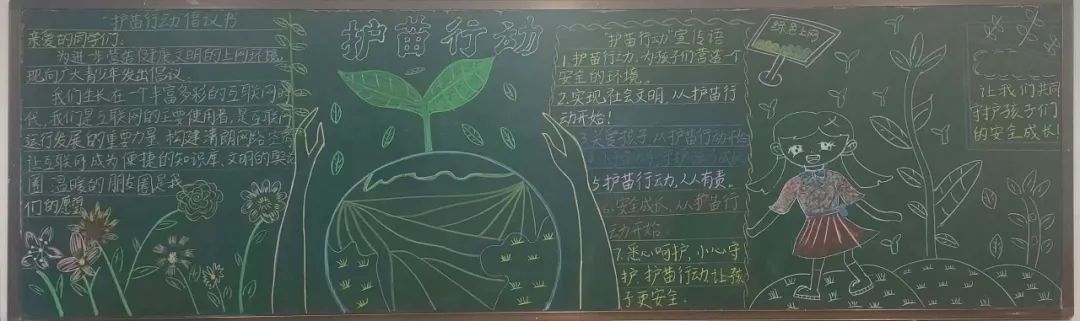 "护苗行动"倡议书
亲爱的同学们:
为进一步营造健康文明的上网环境,
现向广大青少年发出倡议.
我们生长在一个丰富多彩的互联网时
代,我们是互联网的主要使用者,是互联网
运行发展的重要力量,构建清朗网络空间
让互联网成为便捷的知识库,文明的
圈 温暖的朋友圈是我
们的愿望
护苗行动
"护苗行动"宣传语
1.护苗行动,为孩子们营造一个
安全的环境.
2.实现社会文明,从护苗行
动开始!
3.关爱孩子,从护苗行动开始
5.护苗行动,人人有责.
6.安全成长,从护苗行
动开始.
7.悉心呵护,小心守
护,护苗行动,让孩
子更安全.
绿色上网
让我们共同
守护孩子们
的安全成长!